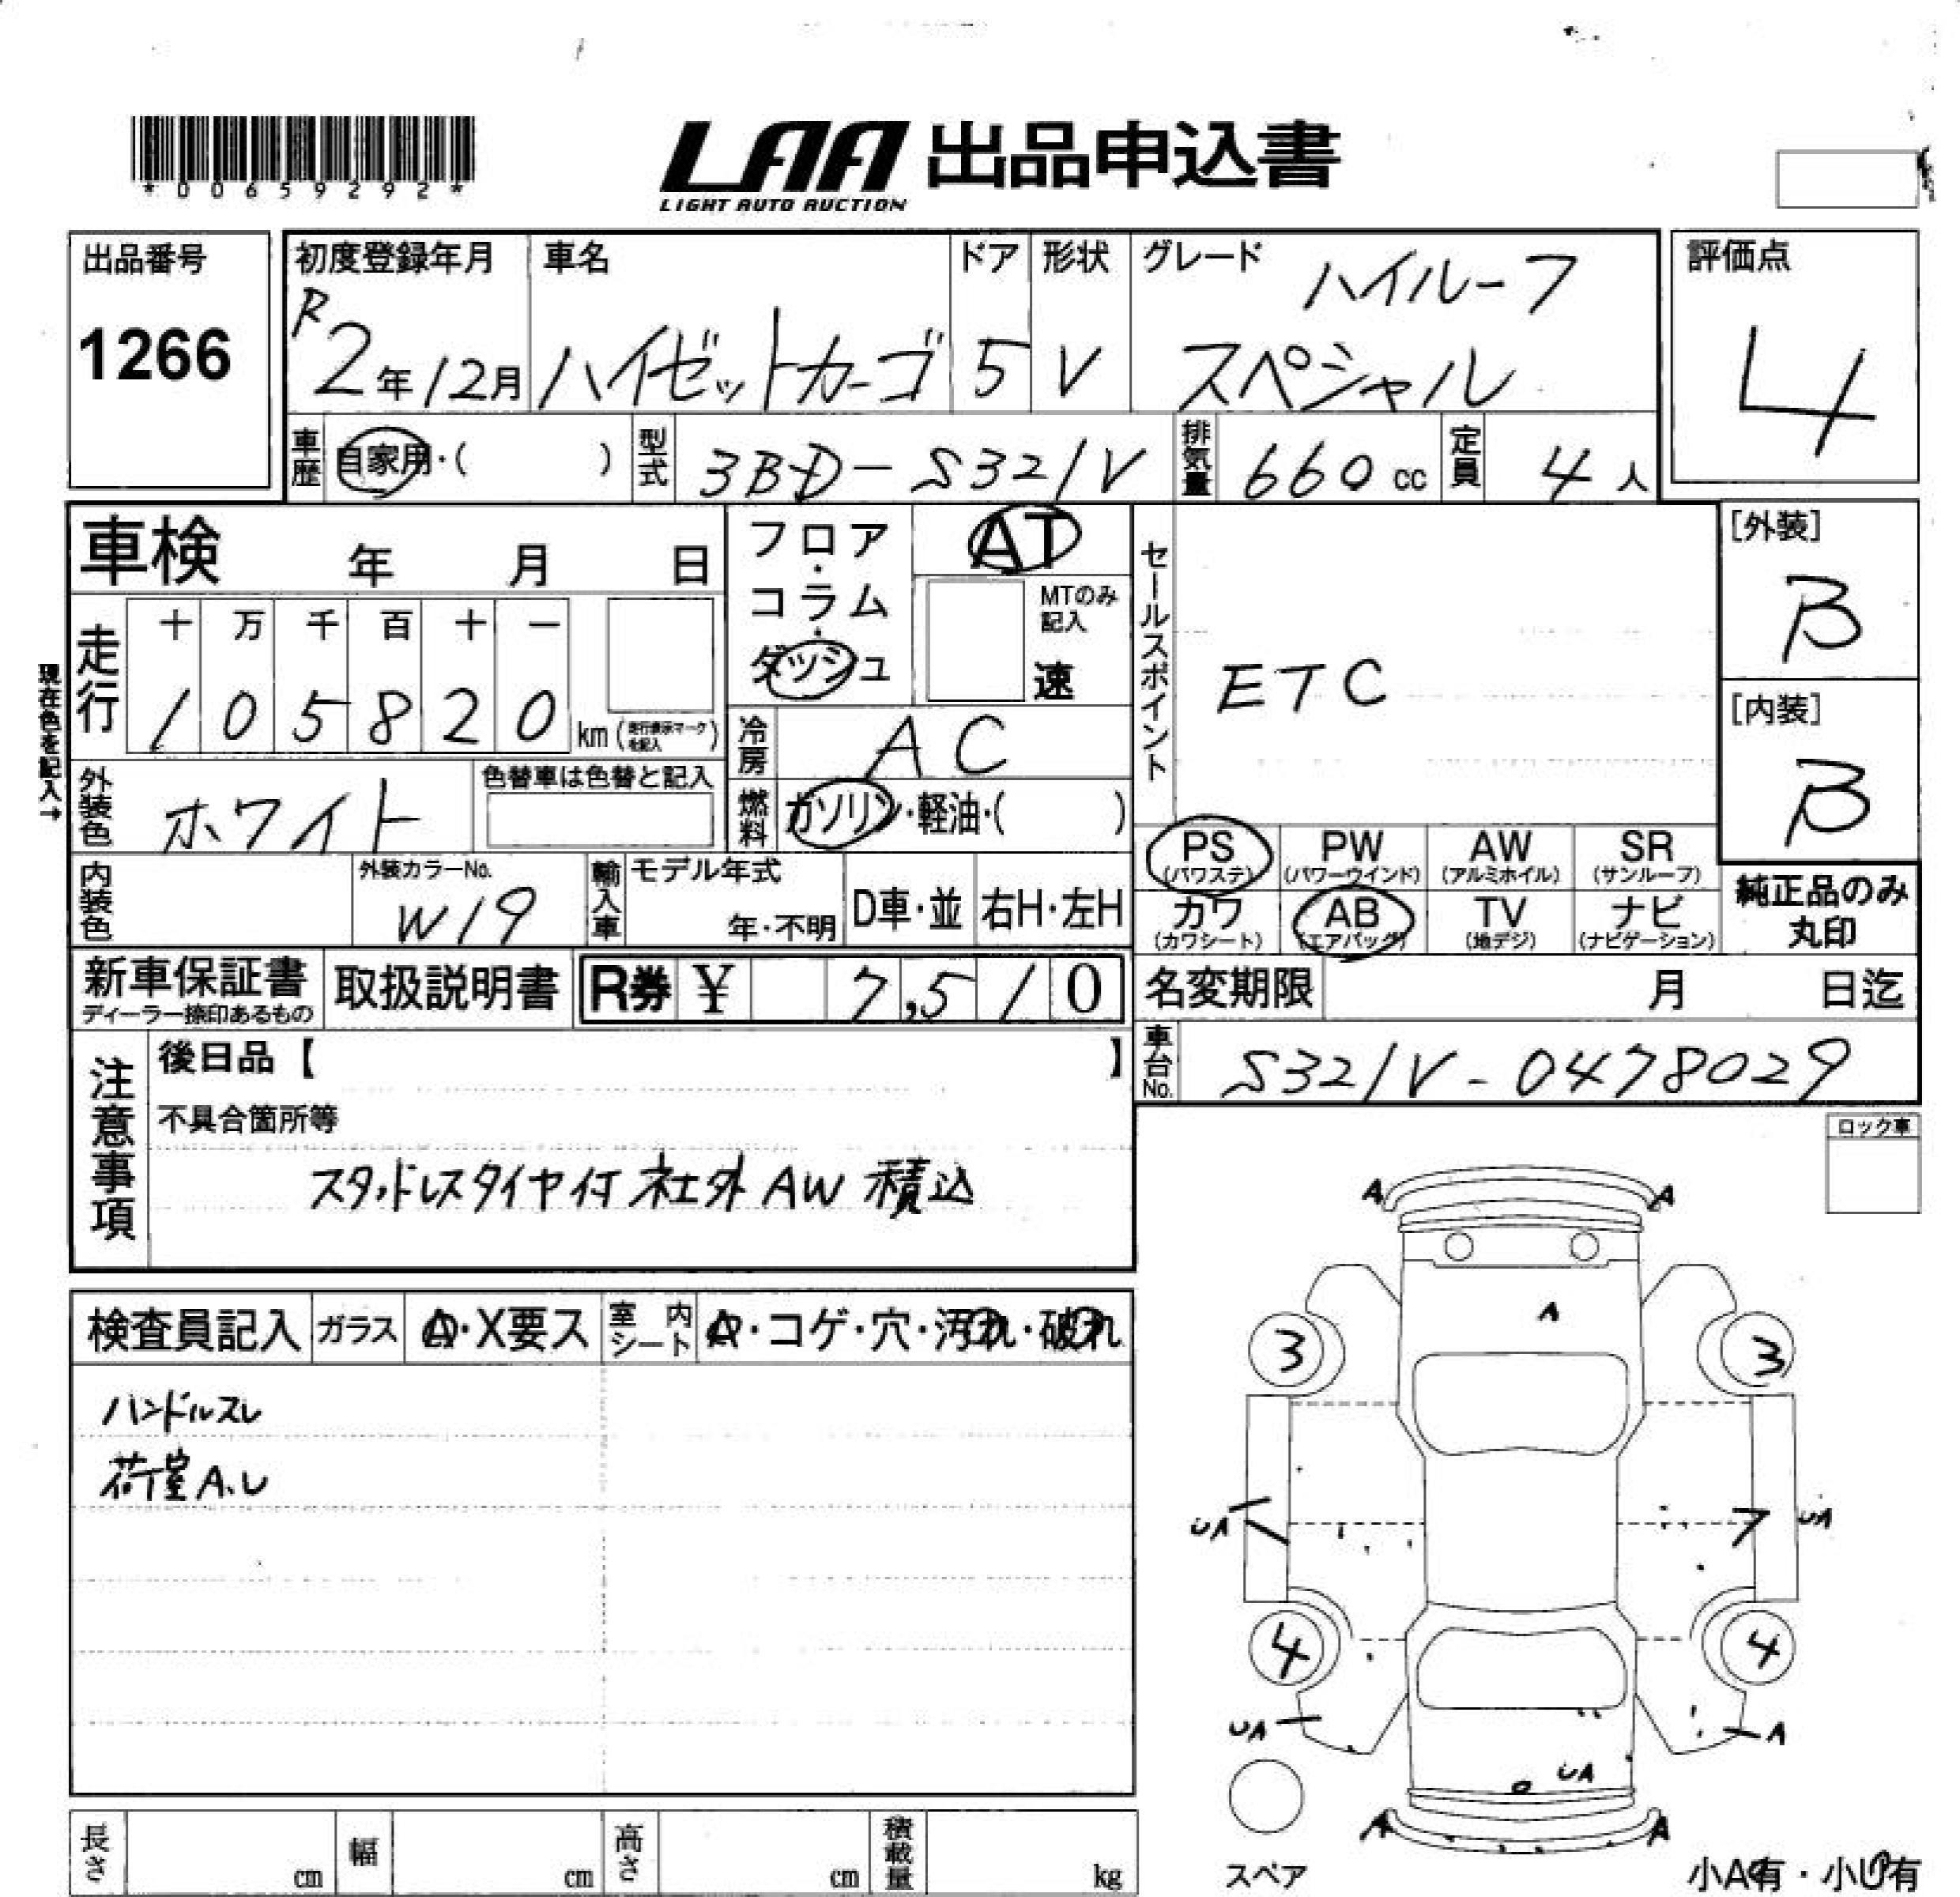 *00659292*
LAA 出品申込書
LIGHT AUTO AUCTION
出品番号
1266
初度登録年月
R2年12月
車名
ハイゼットカーゴ
ドア
5
形状
V
グレード
ハイルーフ
スペシャル
評価点
4
車歴
自家用・( )
型式
3BD-S321V
排気量
660cc
定員
4人
車検 年 月 日
フロア・コラム・ダッシュ
AT
MTのみ記入
速
セールスポイント
ETC
[外装]
B
[内装]
B
現在色を記入→
走行
十 万 千 百 十 一
1 0 5 8 2 0 km(走行表示マークを記入)
冷房
AC
外装色
ホワイト
色替車は色替と記入
燃料
ガソリン・軽油・( )
PS
(パワステ)
PW
(パワーウインド)
AW
(アルミホイル)
SR
(サンルーフ)
カワ
(カワシート)
AB
(エアバッグ)
TV
(地デジ)
ナビ
(ナビゲーション)
純正品のみ
丸印
内装色
外装カラーNo.
W19
輸入車
モデル年式
年・不明
D車・並
右H・左H
新車保証書
ディーラー捺印あるもの
取扱説明書
R券 ¥ 7,510
名変期限 月 日迄
車台No.
S321V-0478029
注意事項
後日品【 】
不具合箇所等
スタッドレスタイヤ付 社外AW 積込
ロック車
検査員記入
ガラス
A・X要ス
室内シート
A・コゲ・穴・汚れ・破れ
ハンドルスレ
荷室A.U
A A
A
3 3
UA UA
4 4
UA A
UA
A A
スペア
小A有・小U有
長さ cm
幅 cm
高さ cm
積載量 kg